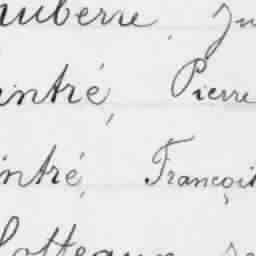 auberre. Ju
eintré, Pierre
intré, Françoi
Cotteaux